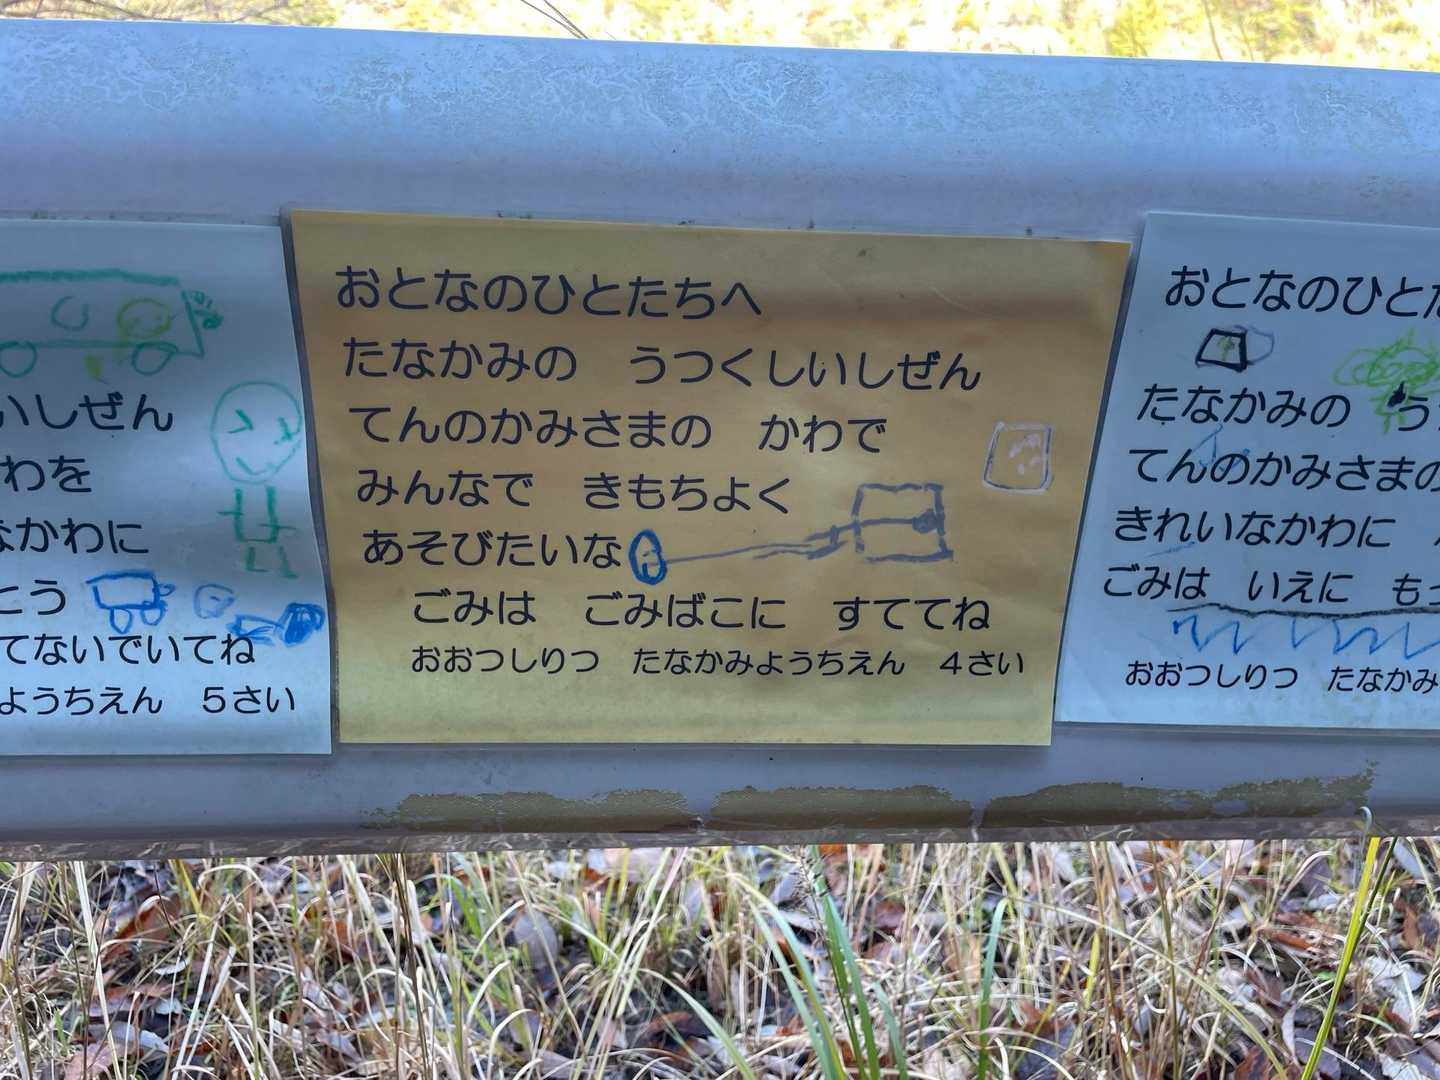 いしぜん
わを
なかわに
とう
てないでいてね
ようちえん　5さい
おとなのひとたちへ
たなかみの　うつくしいしぜん
てんのかみさまの　かわで
みんなで　きもちよく
あそびたいな
ごみは　ごみばこに　すててね
おおつしりつ　たなかみようちえん　4さい
おとなのひとた
たなかみの　う
てんのかみさまの
きれいなかわに
ごみは　いえに　もっ
おおつしりつ　たなかみ